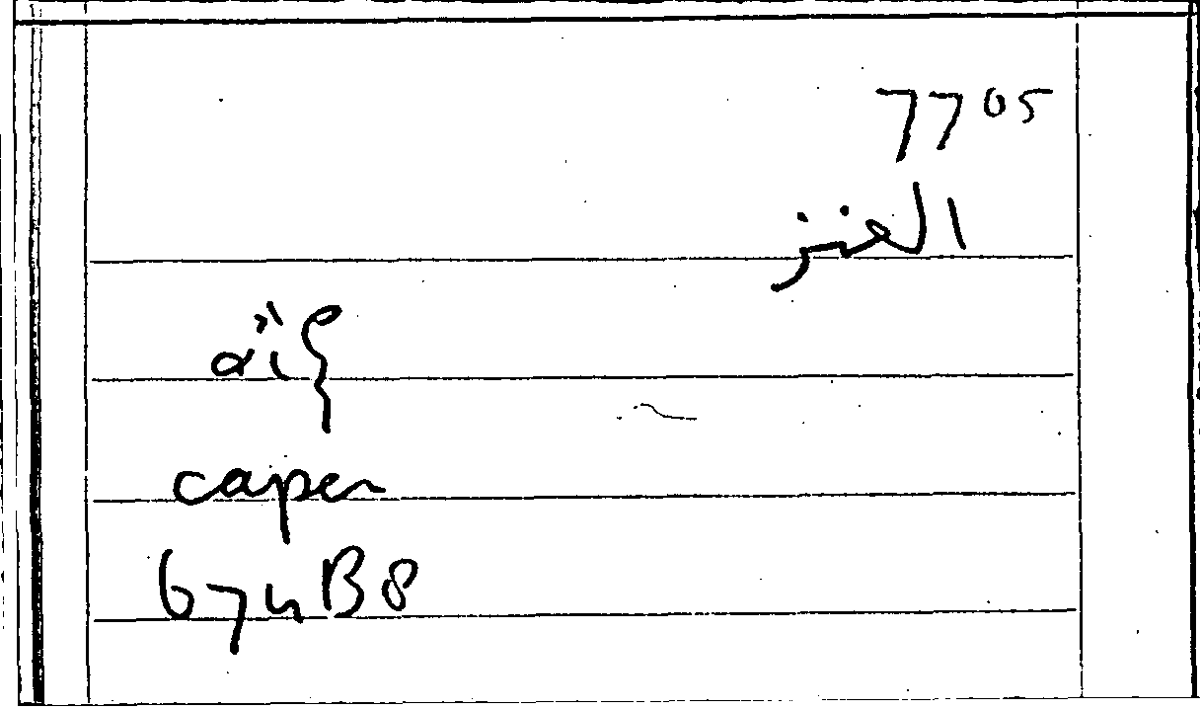 7705
العنز
αἴξ
caper
674B8